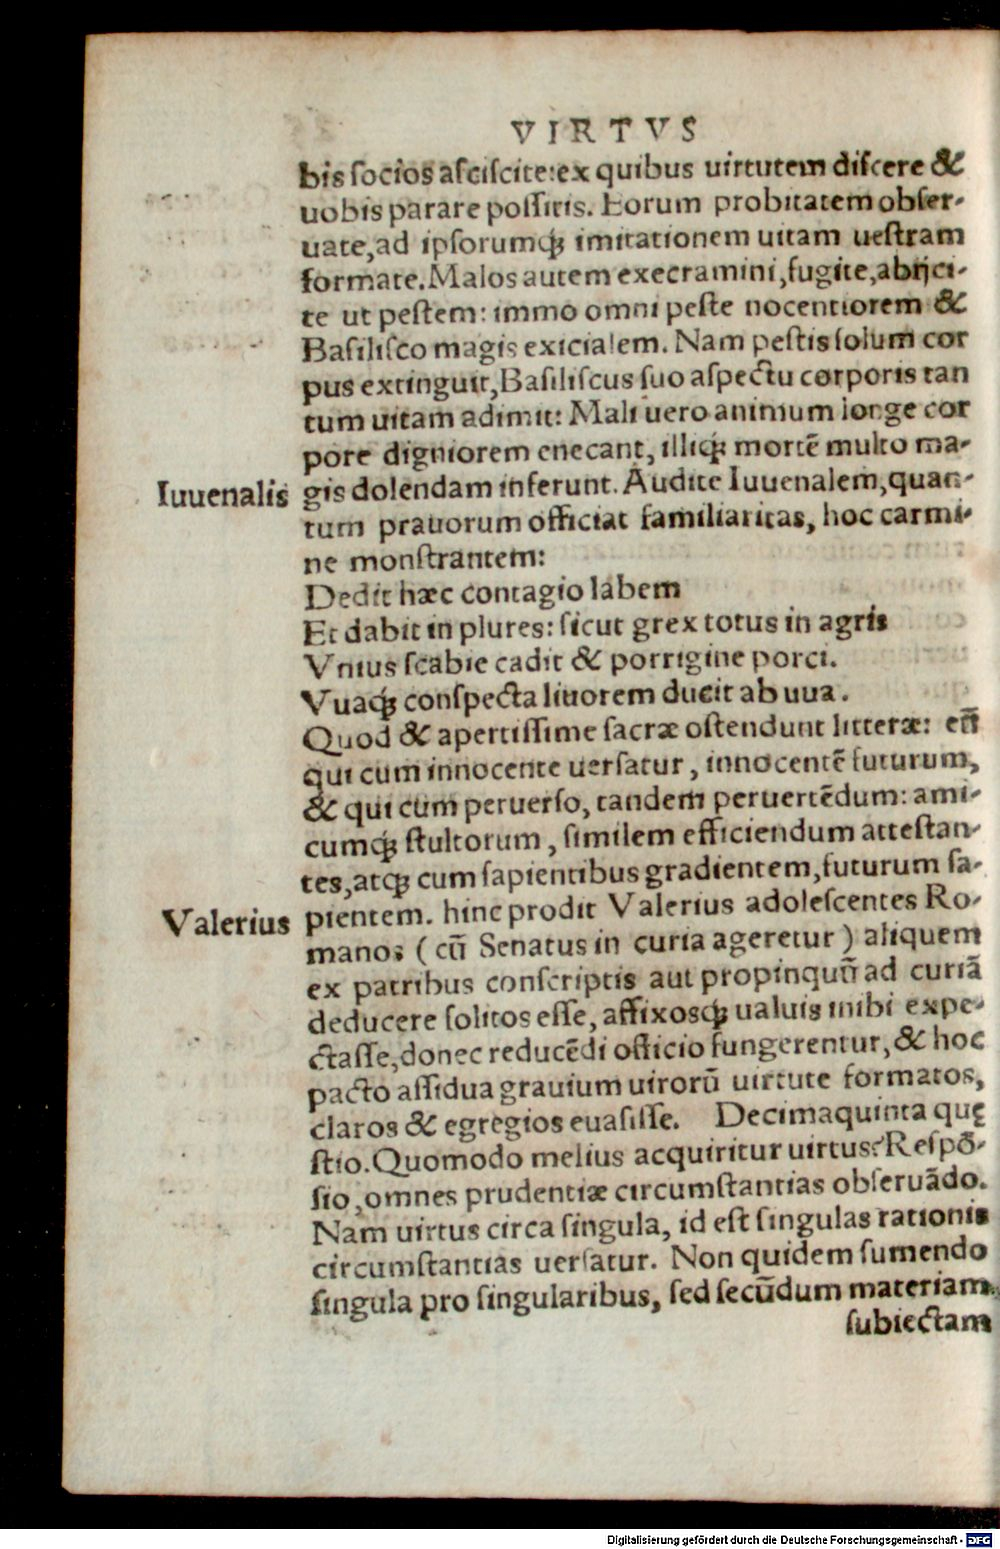 VIRTVS
bis ſocios aſciſcite:ex quibus uirtutem diſcere &
uobis parare poſſitis. Eorum probitatem obſer-
uate,ad ipſorumq́ꝫ imitationem uitam ueſtram
formate.Malos autem execramini,fugite,abijci-
te ut peſtem: immo omni peſte nocentiorem &
Baſiliſco magis exicialem. Nam peſtis ſolum cor
pus extinguit,Baſiliſcus ſuo aſpectu corporis tan
tum uitam adimit: Mali uero animum longe cor
pore digniorem enecant, illiq́ꝫ mortē multo ma-
Iuuenalis gis dolendam inferunt. Audite Iuuenalem,quan-
tum prauorum officiat familiaritas, hoc carmi-
ne monſtrantem:
Dedit hæc contagio labem
Et dabit in plures: ſicut grex totus in agris
Vnius ſcabie cadit & porrigine porci.
Vuaq́ꝫ conſpecta liuorem ducit ab uua.
Quod & apertiſſime ſacræ oſtendunt litteræ: eū
qui cum innocente uerſatur, innocentē futurum,
& qui cum peruerſo, tandem peruertēdum: ami-
cumq́ꝫ ſtultorum, ſimilem efficiendum atteſtan-
tes,atq́ꝫ cum ſapientibus gradientem,futurum ſa-
Valerius pientem. hinc prodit Valerius adoleſcentes Ro-
manos (cū Senatus in curia ageretur) aliquem
ex patribus conſcriptis aut propinquū ad curiā
deducere ſolitos eſſe, affixosq́ꝫ ualuis inibi expe-
ctaſſe,donec reducēdi officio fungerentur,& hoc
pacto aſſidua grauium uirorū uirtute formatos,
claros & egregios euaſiſſe. Decimaquinta quę
ſtio.Quomodo melius acquiritur uirtus?Reſpō-
ſio,omnes prudentiæ circumſtantias obſeruādo.
Nam uirtus circa ſingula, id eſt ſingulas rationis
circumſtantias uerſatur. Non quidem ſumendo
ſingula pro ſingularibus, ſed ſecūdum materiam
ſubiectam
Digitalisierung gefördert durch die Deutsche Forschungsgemeinschaft - DFG